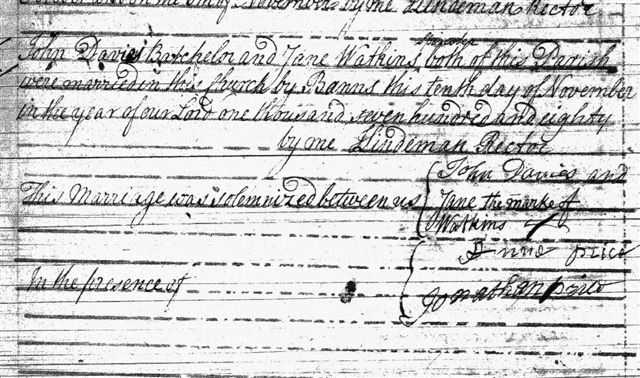 of November by me Lindeman Rector
Spinster
John Davies Batchelor and Jane Watkins both of this Parish
were married in this Church by Banns this tenth day of November
in the year of our Lord one thousand seven hundred and eighty
by me Lindeman Rector
This Marriage was solemnized between us
John Davies and
Jane the marke of
Watkins
In the presence of
Anne price
Jonathan price